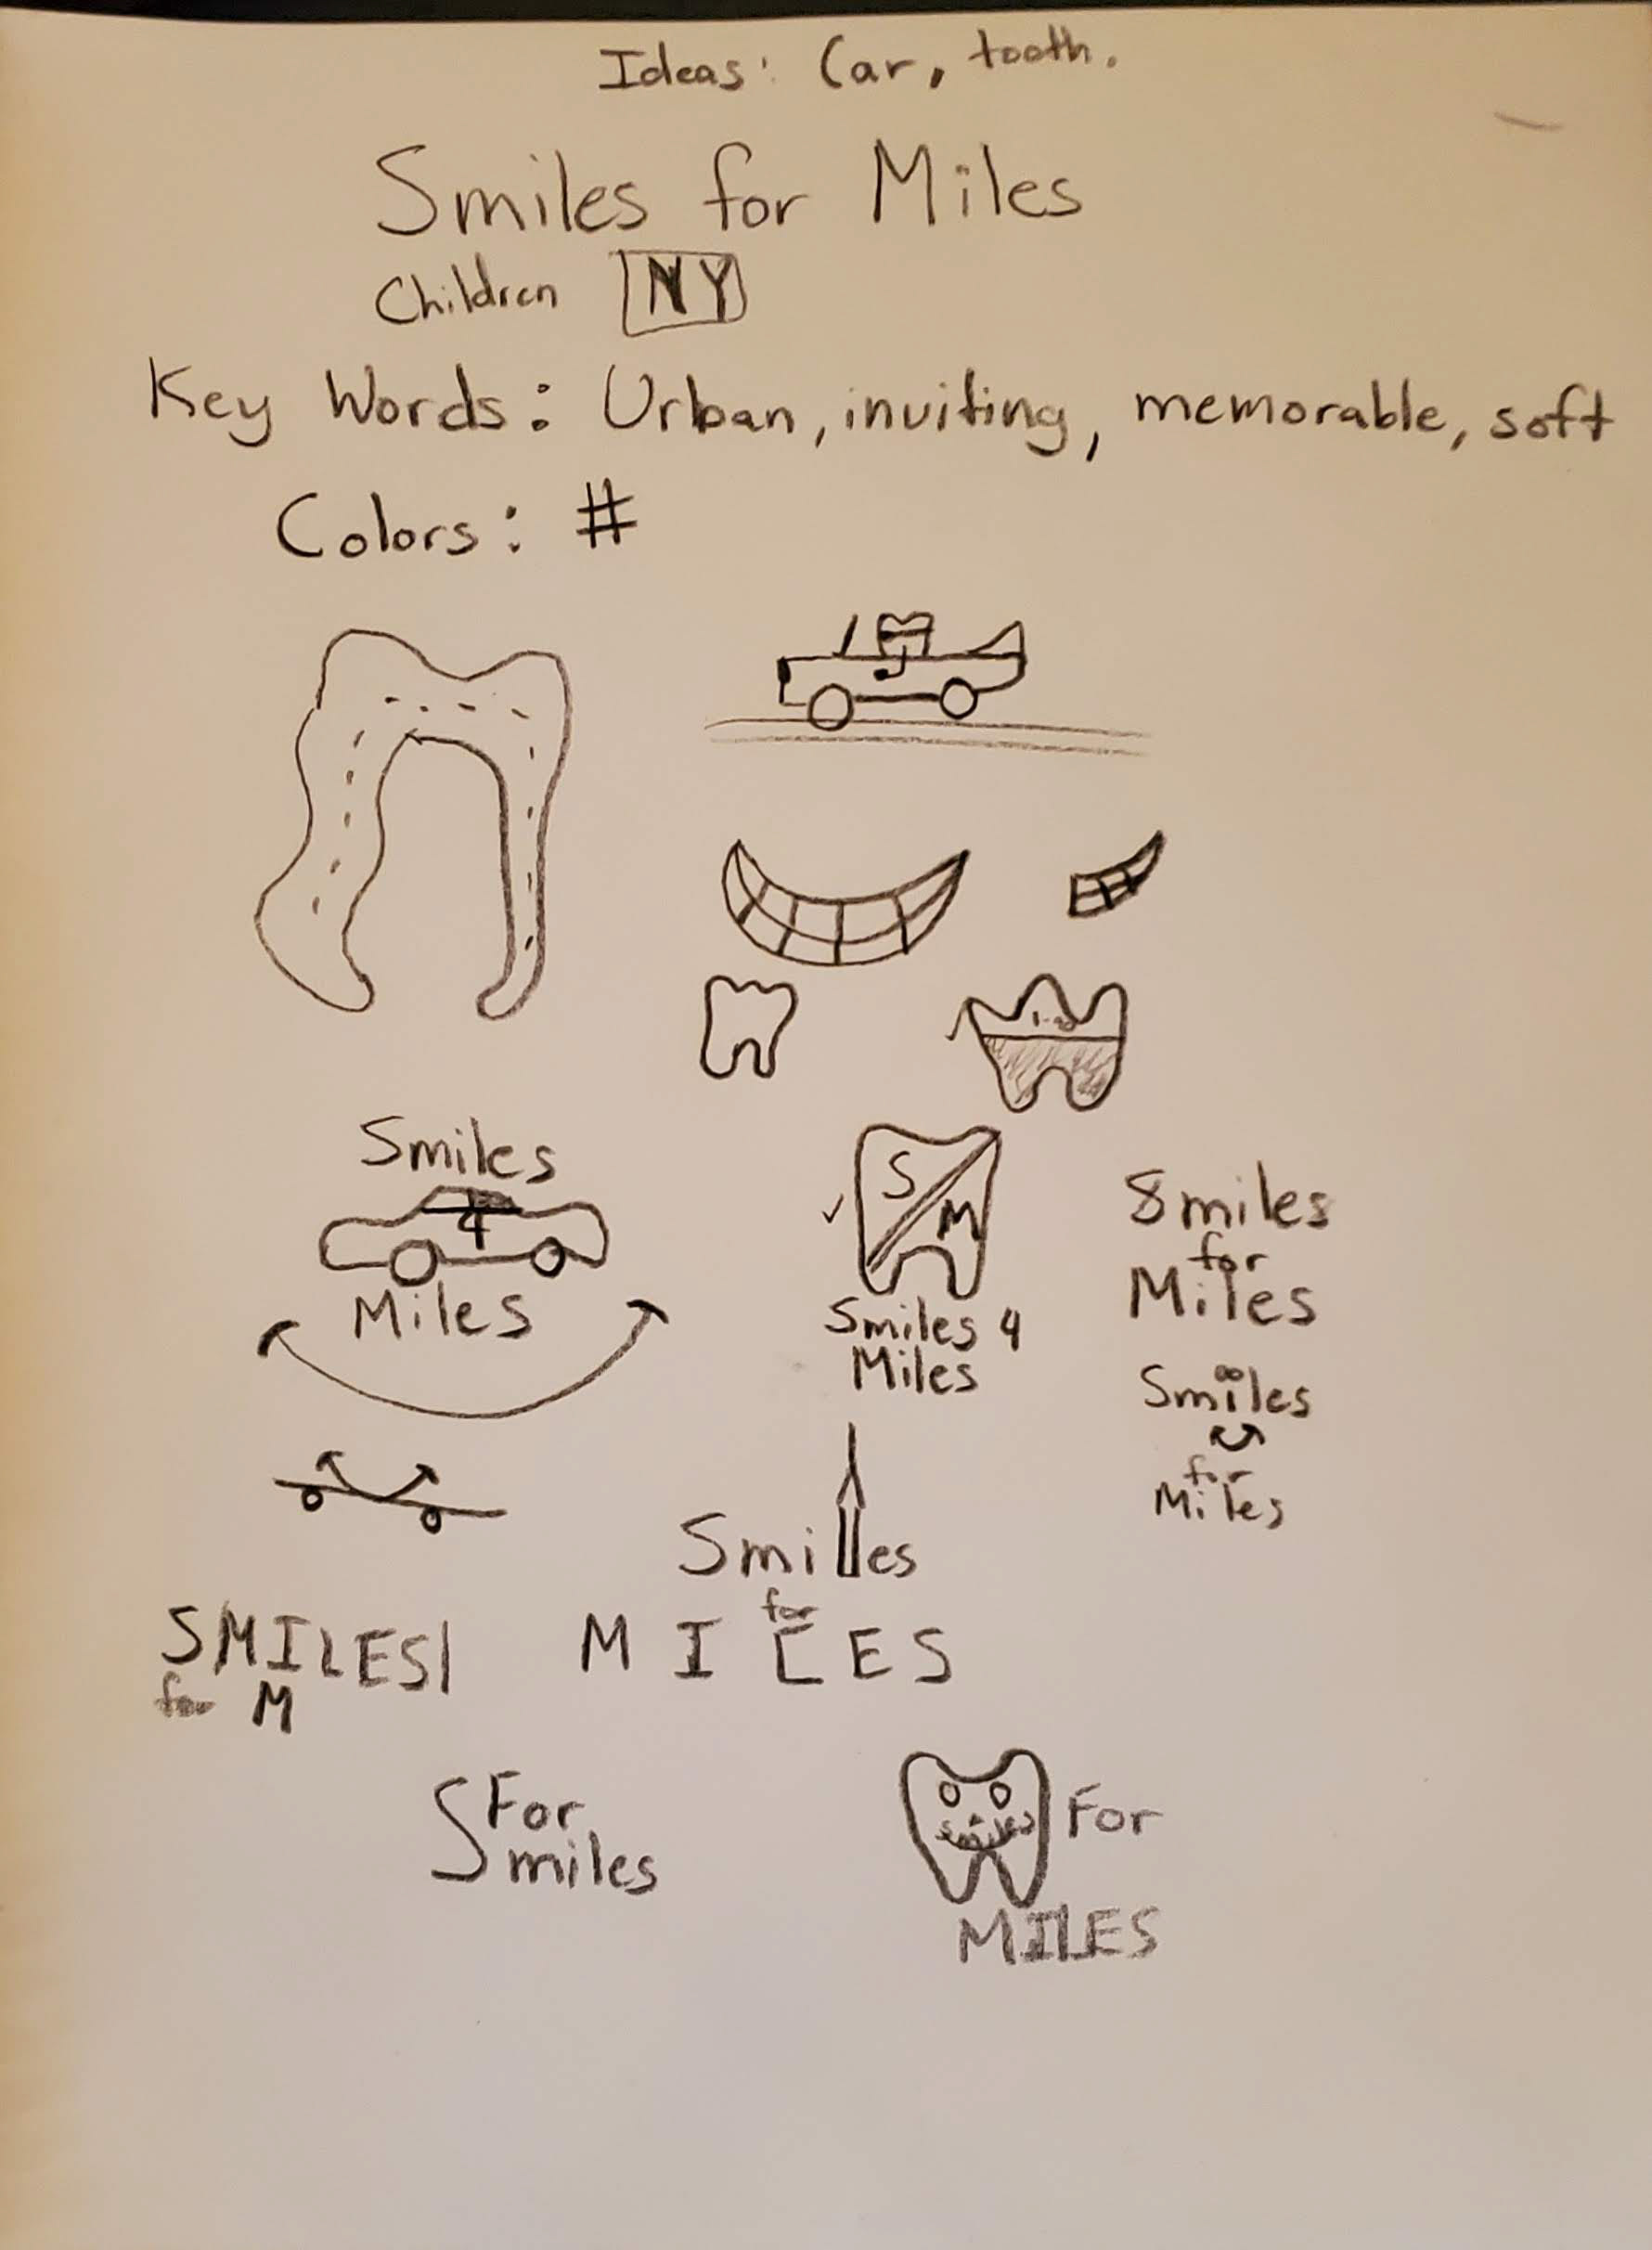 Ideas: Car, tooth.
Smiles for Miles
Children NY
Key Words: Urban, inviting, memorable, soft
Colors: #
Smiles
4
Miles
S
M
Smiles 4
Miles
Smiles
for
Miles
Smiles
for
Miles
Smiles
for
MILES
SMILES
for M
S For
miles
smiles For
MILES